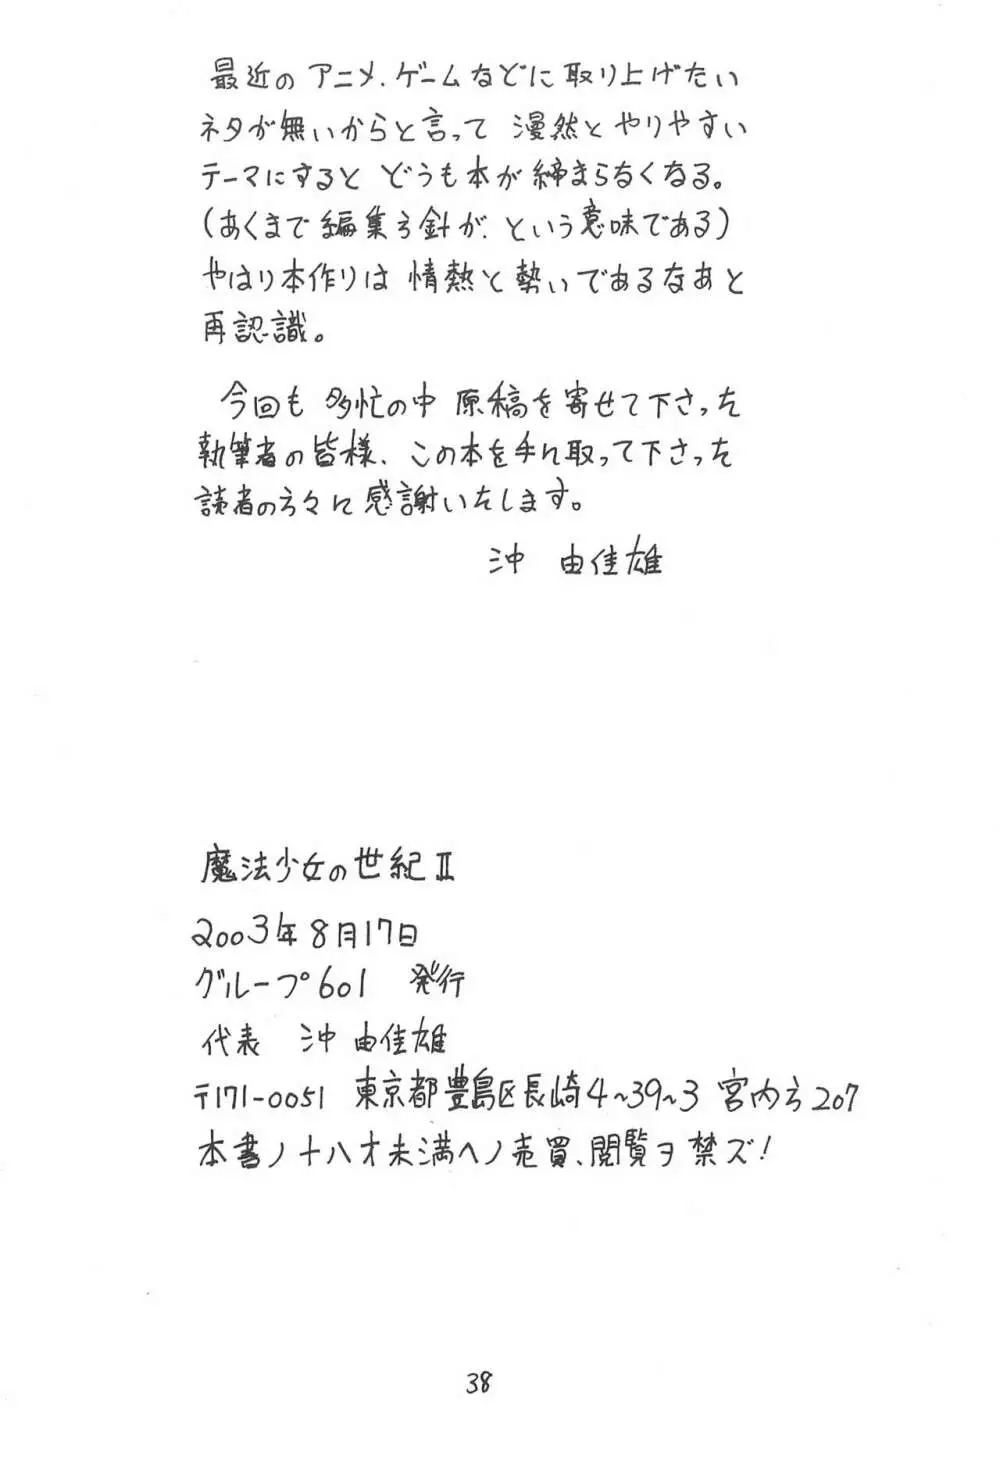 最近の アニメ、ゲームなどに 取り上げたい
ネタが無いからと言って 漫然と やりやすい
テーマにすると どうも本が締まらなくなる。
(あくまで編集方針が、という意味である)
やはり本作りは 情熱と勢いであるなあと
再認識。
今回も 多忙の中 原稿を寄せて下さった
執筆者の皆様、この本を手に取って下さった
読者の方々に 感謝いたします。
沖 由佳雄
魔法少女の世紀Ⅱ
2003年8月17日
グループ601 発行
代表 沖 由佳雄
〒171-0051 東京都豊島区長崎4~39~3 宮内方207
本書ノ十八才未満ヘノ売買、閲覧ヲ禁ズ!
38